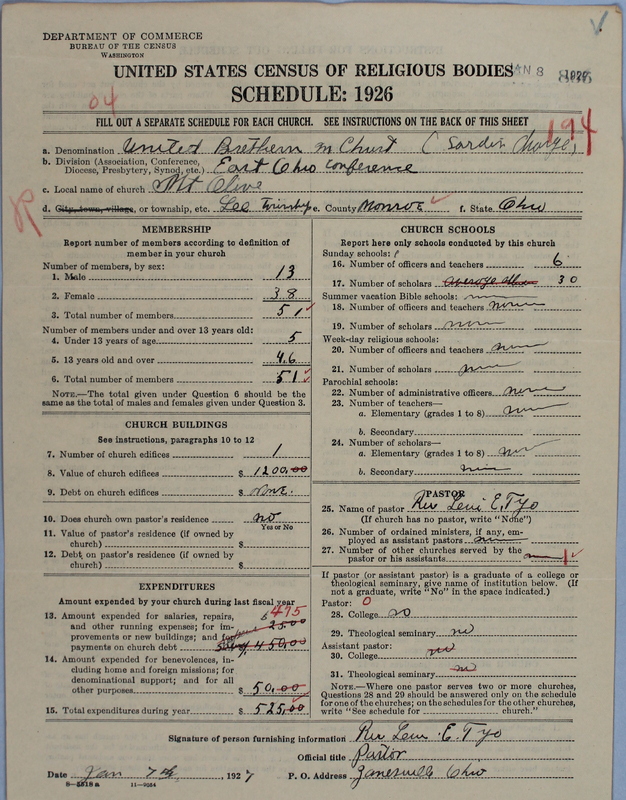 DEPARTMENT OF COMMERCE
BUREAU OF THE CENSUS
WASHINGTON
UNITED STATES CENSUS OF RELIGIOUS BODIES
JAN 8
SCHEDULE: 1926
04
FILL OUT A SEPARATE SCHEDULE FOR EACH CHURCH. SEE INSTRUCTIONS ON THE BACK OF THIS SHEET
194
a. Denomination United Brethern in Christ (Sardis Charge)
b. Division (Association, Conference, Diocese, Presbytery, Synod, etc.) East Ohio Conference
c. Local name of church Mt Olive
d. City, town, village, or township, etc. Lee Township e. County Monroe f. State Ohio
MEMBERSHIP
Report number of members according to definition of member in your church
Number of members, by sex:
1. Male 13
2. Female 38
3. Total number of members 51
Number of members under and over 13 years old:
4. Under 13 years of age 5
5. 13 years old and over 46
6. Total number of members 51
NOTE.—The total given under Question 6 should be the same as the total of males and females given under Question 3.
CHURCH BUILDINGS
See instructions, paragraphs 10 to 12
7. Number of church edifices 1
8. Value of church edifices $ 1200.00
9. Debt on church edifices $ None.
10. Does church own pastor's residence no
Yes or No
11. Value of pastor's residence (if owned by church) $
12. Debt on pastor's residence (if owned by church) $
EXPENDITURES
Amount expended by your church during last fiscal year
13. Amount expended for salaries, repairs, and other running expenses; for improvements or new buildings; and for payments on church debt $ 475
25.00
450.00
14. Amount expended for benevolences, including home and foreign missions; for denominational support; and for all other purposes $ 50.00
15. Total expenditures during year $ 525.00
CHURCH SCHOOLS
Report here only schools conducted by this church
Sunday schools:
16. Number of officers and teachers 6
17. Number of scholars average 30
Summer vacation Bible schools:
18. Number of officers and teachers
19. Number of scholars
Week-day religious schools:
20. Number of officers and teachers
21. Number of scholars
Parochial schools:
22. Number of administrative officers
23. Number of teachers—
a. Elementary (grades 1 to 8)
b. Secondary
24. Number of scholars—
a. Elementary (grades 1 to 8)
b. Secondary
PASTOR
25. Name of pastor Rev Levi E. Tyo
(If church has no pastor, write "None")
26. Number of ordained ministers, if any, employed as assistant pastors
27. Number of other churches served by the pastor or his assistants 1
If pastor (or assistant pastor) is a graduate of a college or theological seminary, give name of institution below. (If not a graduate, write "No" in the space indicated.)
Pastor: 0
28. College no
29. Theological seminary no
Assistant pastor:
30. College no
31. Theological seminary no
NOTE.—Where one pastor serves two or more churches, Questions 28 and 29 should be answered only on the schedule for one of the churches; on the schedules for the other churches, write "See schedule for church."
Signature of person furnishing information Rev Levi E. Tyo
Official title Pastor
Date Jan 7th, 1927 P. O. Address Zanesville Ohio
8-5518a 11-9034